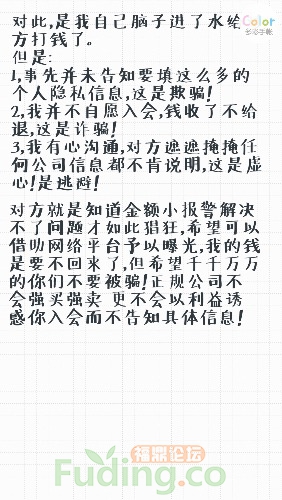 Color
多彩手帐
对此,是我自己脑子进了水给
方打钱了。
但是:
1,事先并未告知要填这么多的
个人隐私信息,这是欺骗!
2,我并不自愿入会,钱收了不给
退,这是诈骗!
3,我有心沟通,对方遮遮掩掩任
何公司信息都不肯说明,这是虚
心!是逃避!
对方就是知道金额小报警解决
不了问题才如此猖狂,希望可以
借助网络平台予以曝光,我的钱
是要不回来了,但希望千千万万
的你们不要被骗!正规公司不
会强买强卖 更不会以利益诱
惑你入会而不告知具体信息!
福鼎论坛
Fuding.co